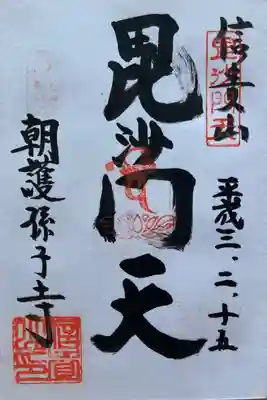 信貴山
平成三、二、十五
毘沙門天
朝護孫子寺